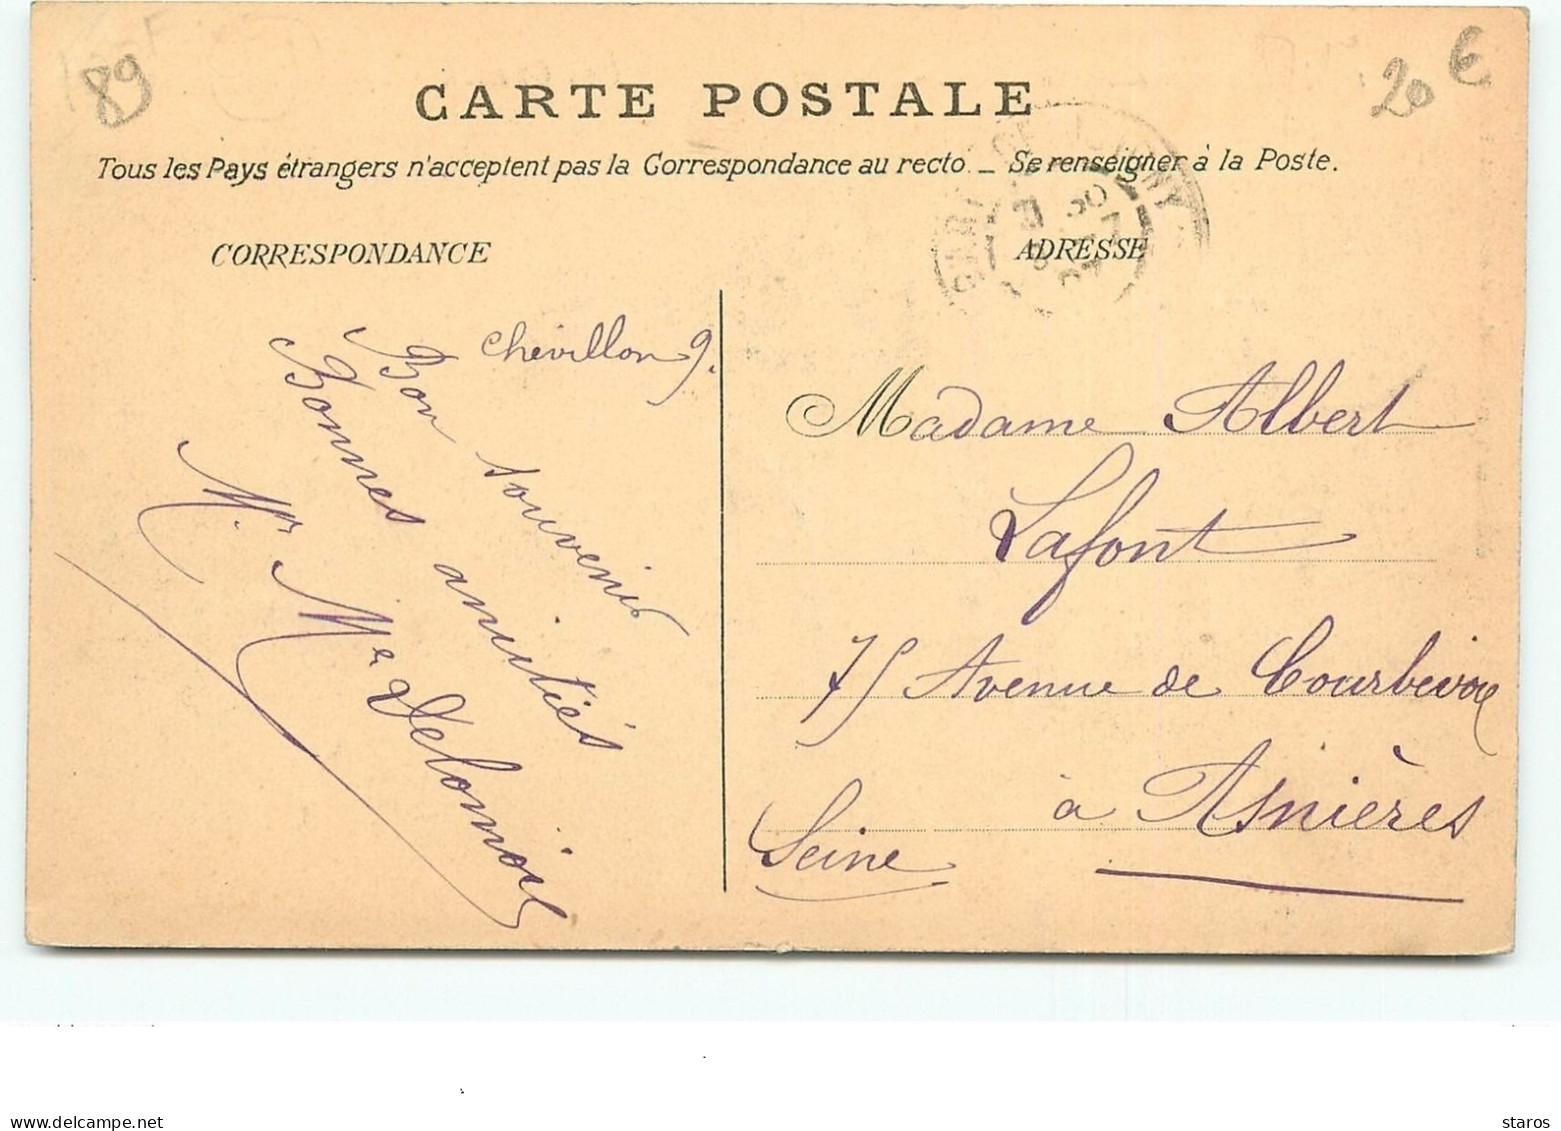 89
20 €
CARTE POSTALE
Tous les Pays étrangers n'acceptent pas la Correspondance au recto _ Se renseigner à la Poste.
CORRESPONDANCE
ADRESSE
Chevillon 9.
Bon souvenir
Bonnes amitiés
Mr Me Delomoie
Madame Albert
Lafont
75 Avenue de Courbevoie
à Asnières
Seine
www.delcampe.net
staros